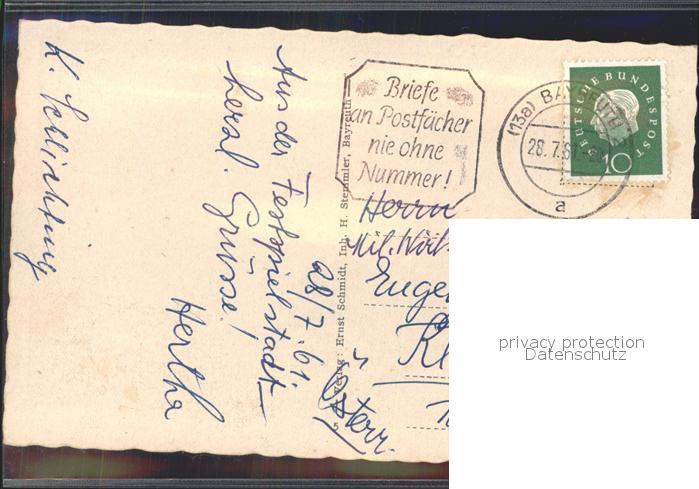 Aus der Festspielstadt
herzl. Grüsse!
Hertha
28/7.61.
K. Schlichting
Verlag: Ernst Schmidt, Inh. H. Stemmler, Bayreuth
Briefe
an Postfächer
nie ohne
Nummer!
(13a) BAYREUTH 2
28.7.61
a
DEUTSCHE BUNDESPOST
10
Herrn
Eugen
Österr.
privacy protection
Datenschutz